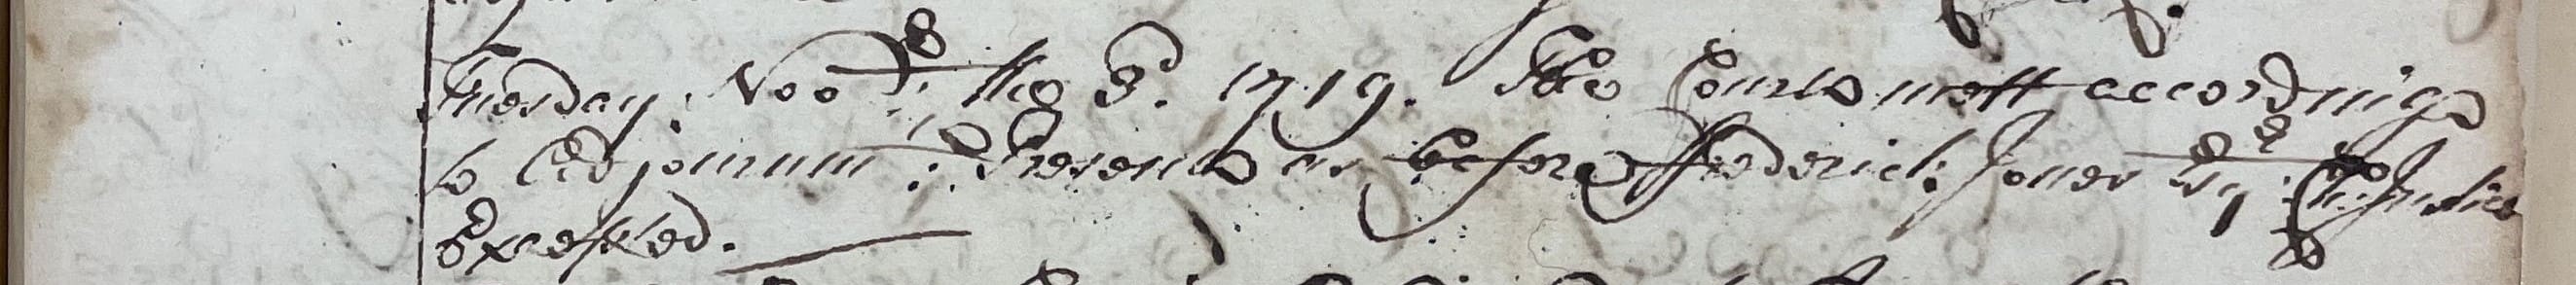 Tuesday. Nov:r the 3d. 1719. The Court mett according
to Adjournmt: Present as before ffrederick Jones Esqr: Ch: Justice
Excepted.